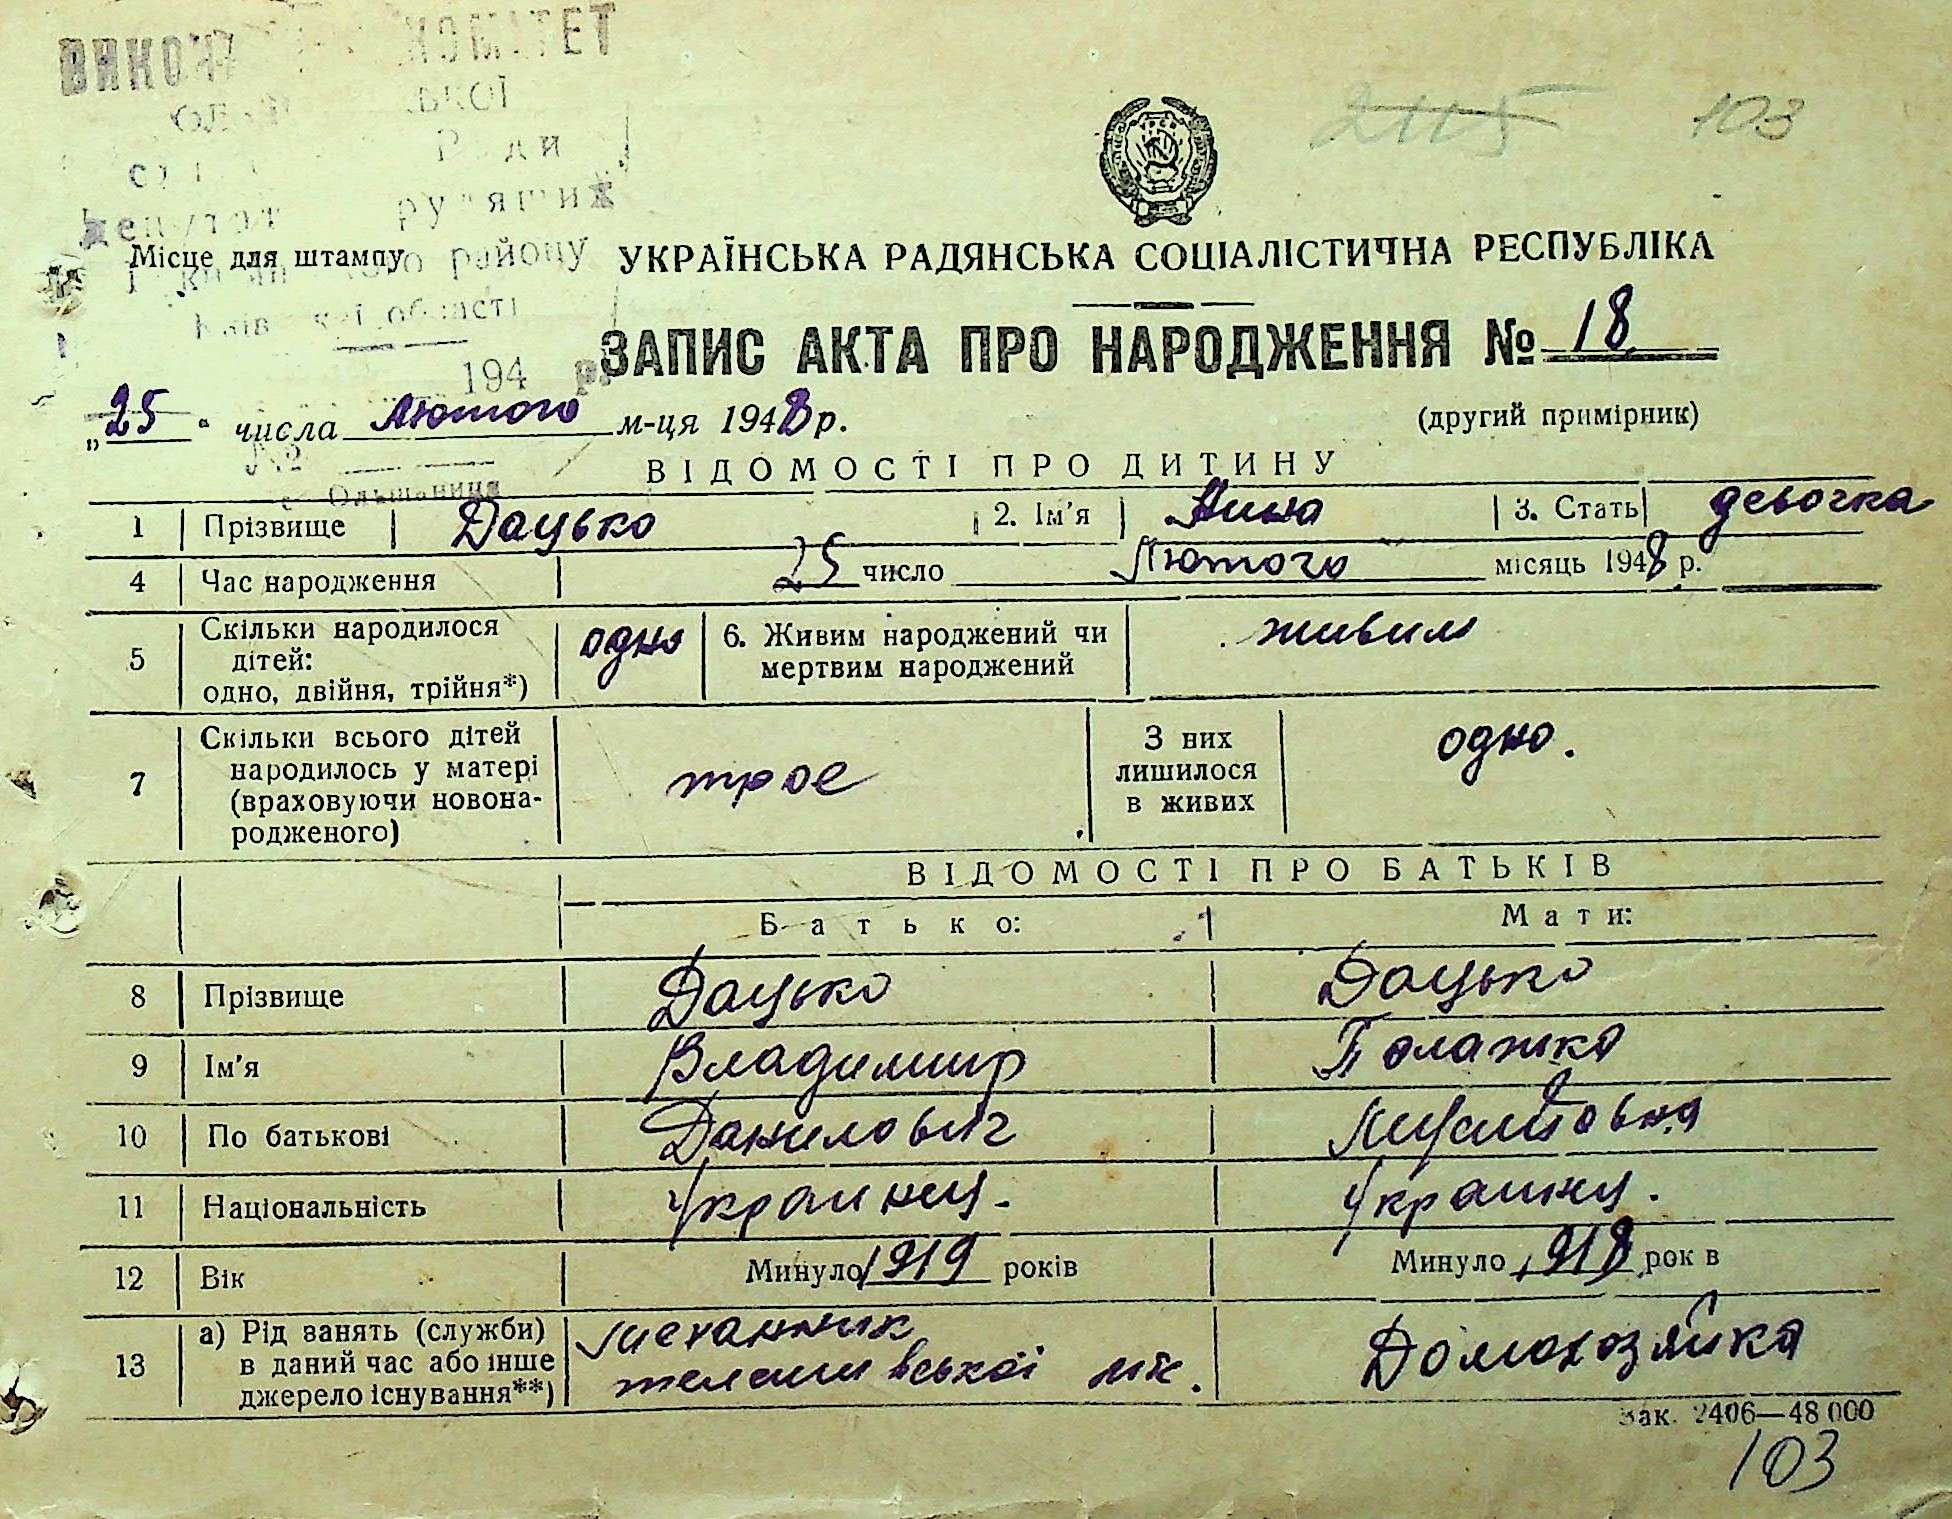 КОМІТЕТ
Ради
району
області
194 р.
№
с. Ольшаниця
2115 103
Місце для штампу
УКРАЇНСЬКА РАДЯНСЬКА СОЦІАЛІСТИЧНА РЕСПУБЛІКА
ЗАПИС АКТА ПРО НАРОДЖЕННЯ № 18
„25“ числа лютого м-ця 1948 р. (другий примірник)
ВІДОМОСТІ ПРО ДИТИНУ
1 Прізвище Дацько 2. Ім'я Нина 3. Стать девочка
4 Час народження 25 число Лютого місяць 1948 р.
5 Скільки народилося дітей: одно, двійня, трійня*) одно 6. Живим народжений чи мертвим народжений живим
7 Скільки всього дітей народилось у матері (враховуючи новона-родженого) трое З них лишилося в живих одно.
ВІДОМОСТІ ПРО БАТЬКІВ
Батько: Мати:
8 Прізвище Дацько Дацько
9 Ім'я Владимир Палажка
10 По батькові Данилович
11 Національність Украинец. Украинец.
12 Вік Минуло 1919 років Минуло 1918 рок в
13 а) Рід занять (служби) в даний час або інше джерело існування**) механник Домохозяйка
Зак. 2406—48 000
103